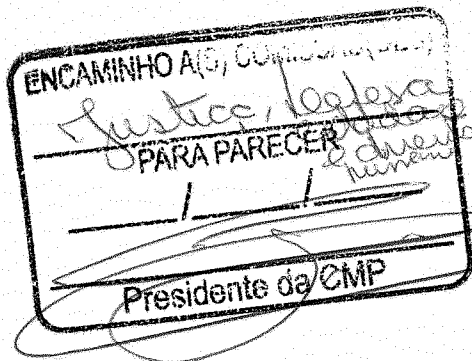 ENCAMINHO A(S) COMISSÃO(ÕES)
Justiça,
PARA PARECER
/ /
Presidente da CMP